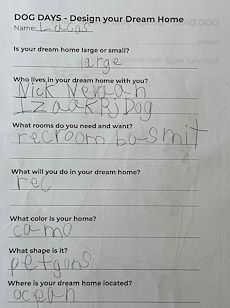 DOG DAYS - Design your Dream Home
Name: Lucas
Is your dream home large or small?
large
Who lives in your dream home with you?
Nick Veraan
Izaak Rj Dog
What rooms do you need and want?
recroom basmit
What will you do in your dream home?
rec
What color is your home?
camo
What shape is it?
petgons
Where is your dream home located?
ocean